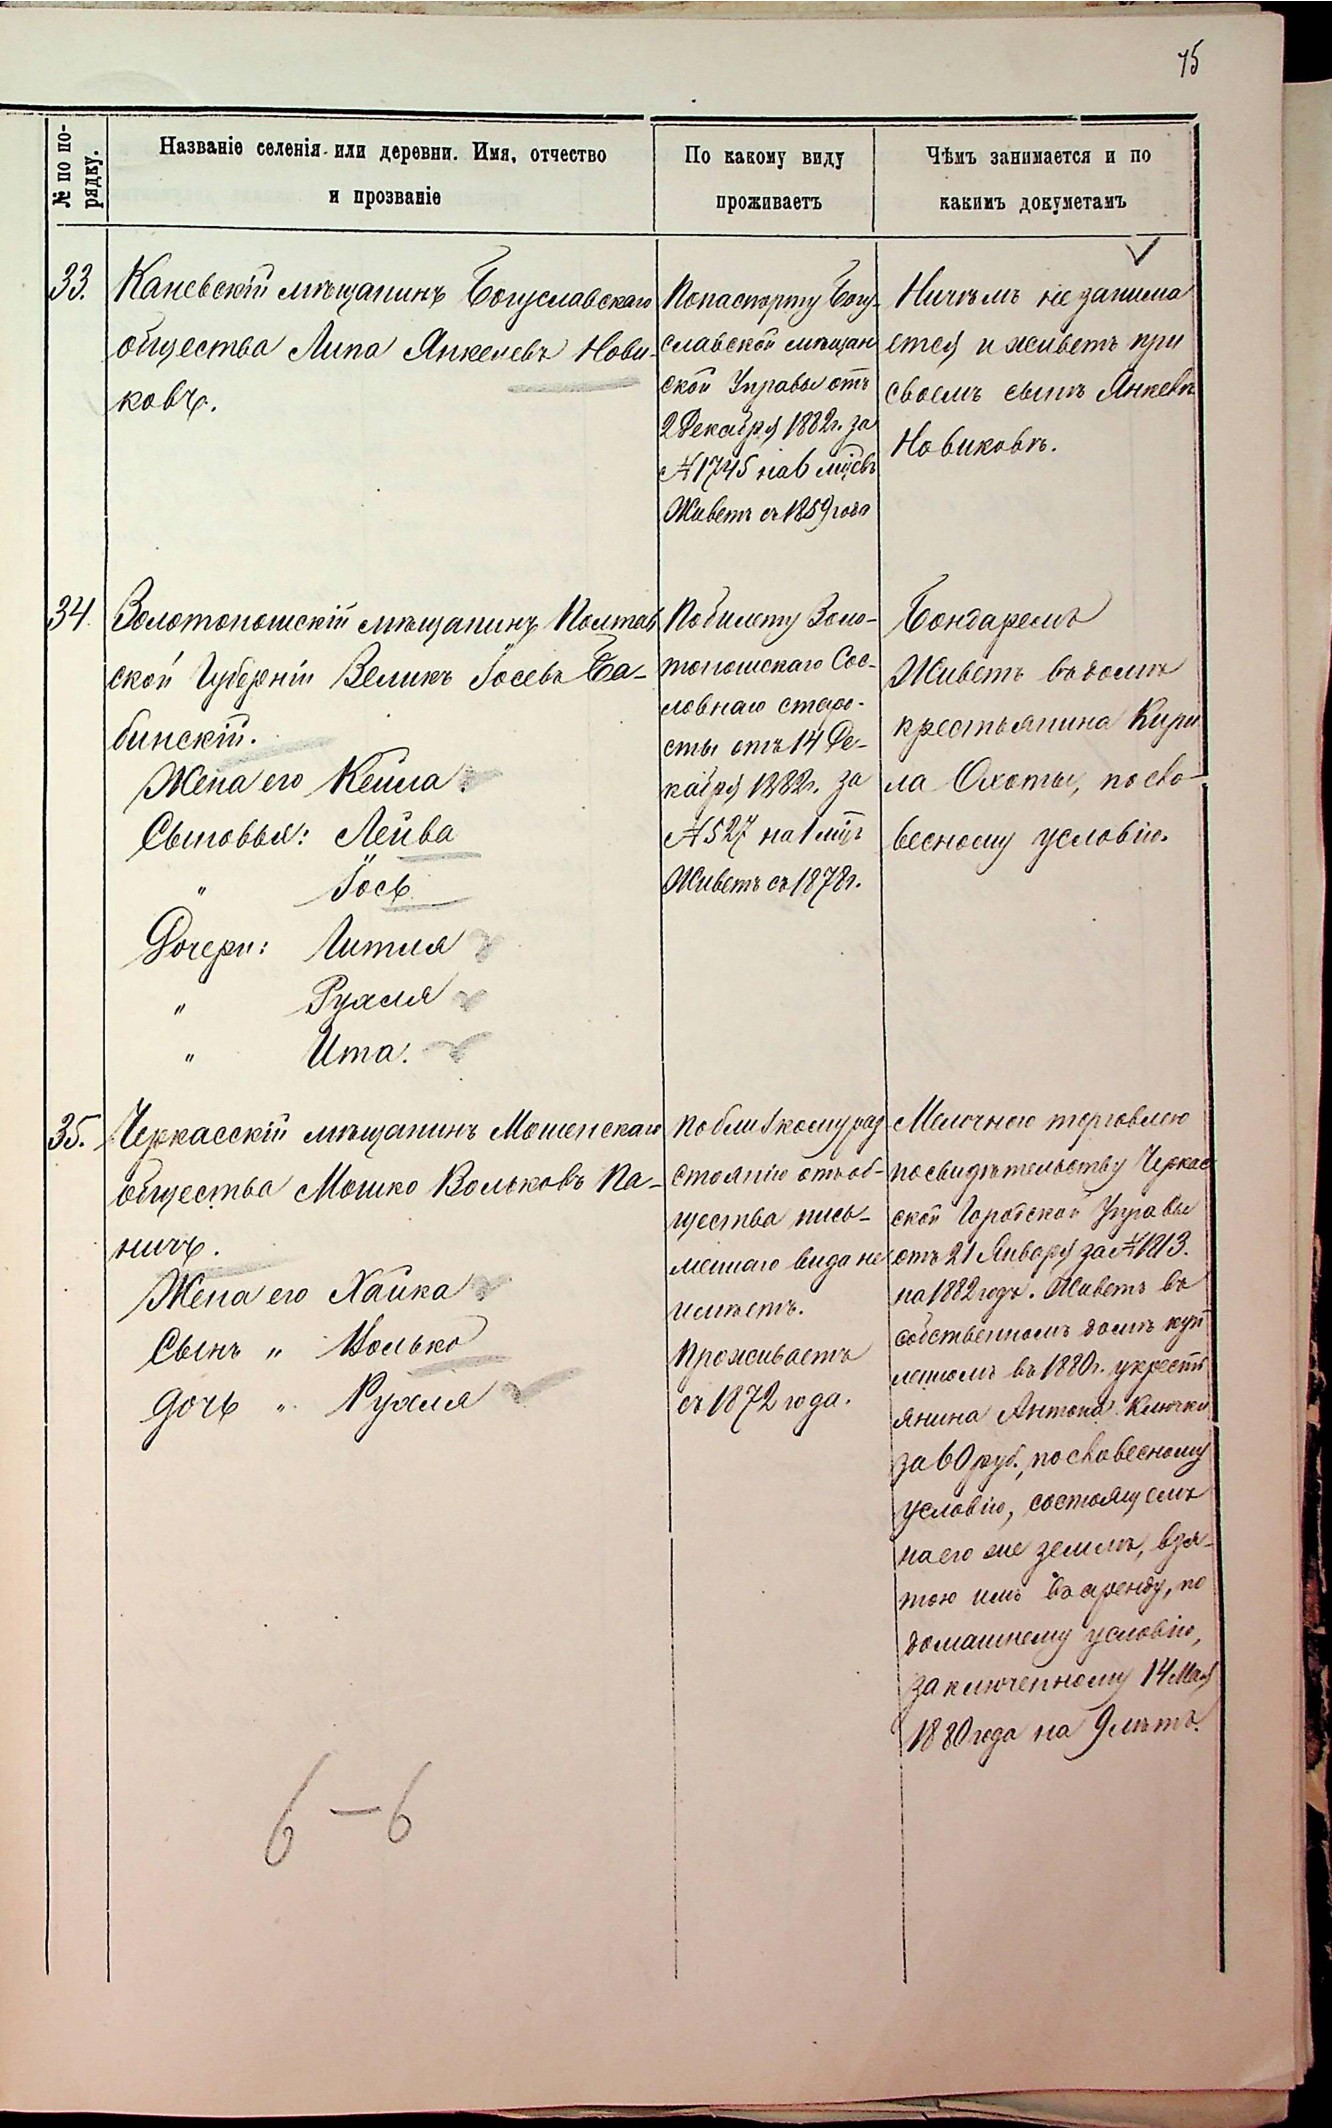 75
№ по по-
рядку.
Названіе селенія или деревни. Имя, отчество
и прозваніе
По какому виду
проживаетъ
Чѣмъ занимается и по
какимъ докуметамъ
33.
Каневскій мѣщанинъ Богуславскаго
общества Липа Янкелевъ Нови-
ковъ.
По паспорту Богу-
славской мѣщан
ской Управы отъ
2 Декабря 1882г. за
№1745 на 6 мѣсвъ
Живетъ съ 1859 года
Ничѣмъ не занима
ется и живетъ при
своемъ сынѣ Янкелѣ
Новиковѣ.
34.
Золотоношскій мѣщанинъ Полтав
ской Губерніи Велико Іосевъ Ба-
бинскій.
Жена его Кейла.
Сыновья: Лейва
" Іось
Дочери: Гитля
" Рухля
" Ита.
По билету Золо-
тоношскаго Сос-
ловнаго старо-
сты отъ 14 Де-
кабря 1882г. за
№527 на 1 мѣцъ
Живетъ съ 1878г.
Бондаремъ
Живетъ въ домѣ
крестьянина Кири
ла Охоты, по сло-
весному условію.
35.
Черкасскій мѣщанинъ Мошенскаго
общества Мошко Вольковъ Па-
ничъ.
Жена его Хайка
Сынъ " Волько
дочь " Рухля
По близкому раз
стоянію отъ об-
щества пись-
меннаго вида не
имѣетъ.
Проживаетъ
съ 1872 года.
Мелочною торговлею
по свидѣтельству Черкас
ской Городской Управы
отъ 21 Января за №1213.
на 1882 годъ. Живетъ въ
собственномъ домѣ куп
ленномъ въ 1880г. у кресть
янина Антона Ключки
за 60 руб., по словесному
условію, состоящемъ
на его же землѣ, взя-
тою имъ въ аренду, по
домашнему условію,
заключенному 14 Мая
1880 года на 9 лѣтъ.
6-6